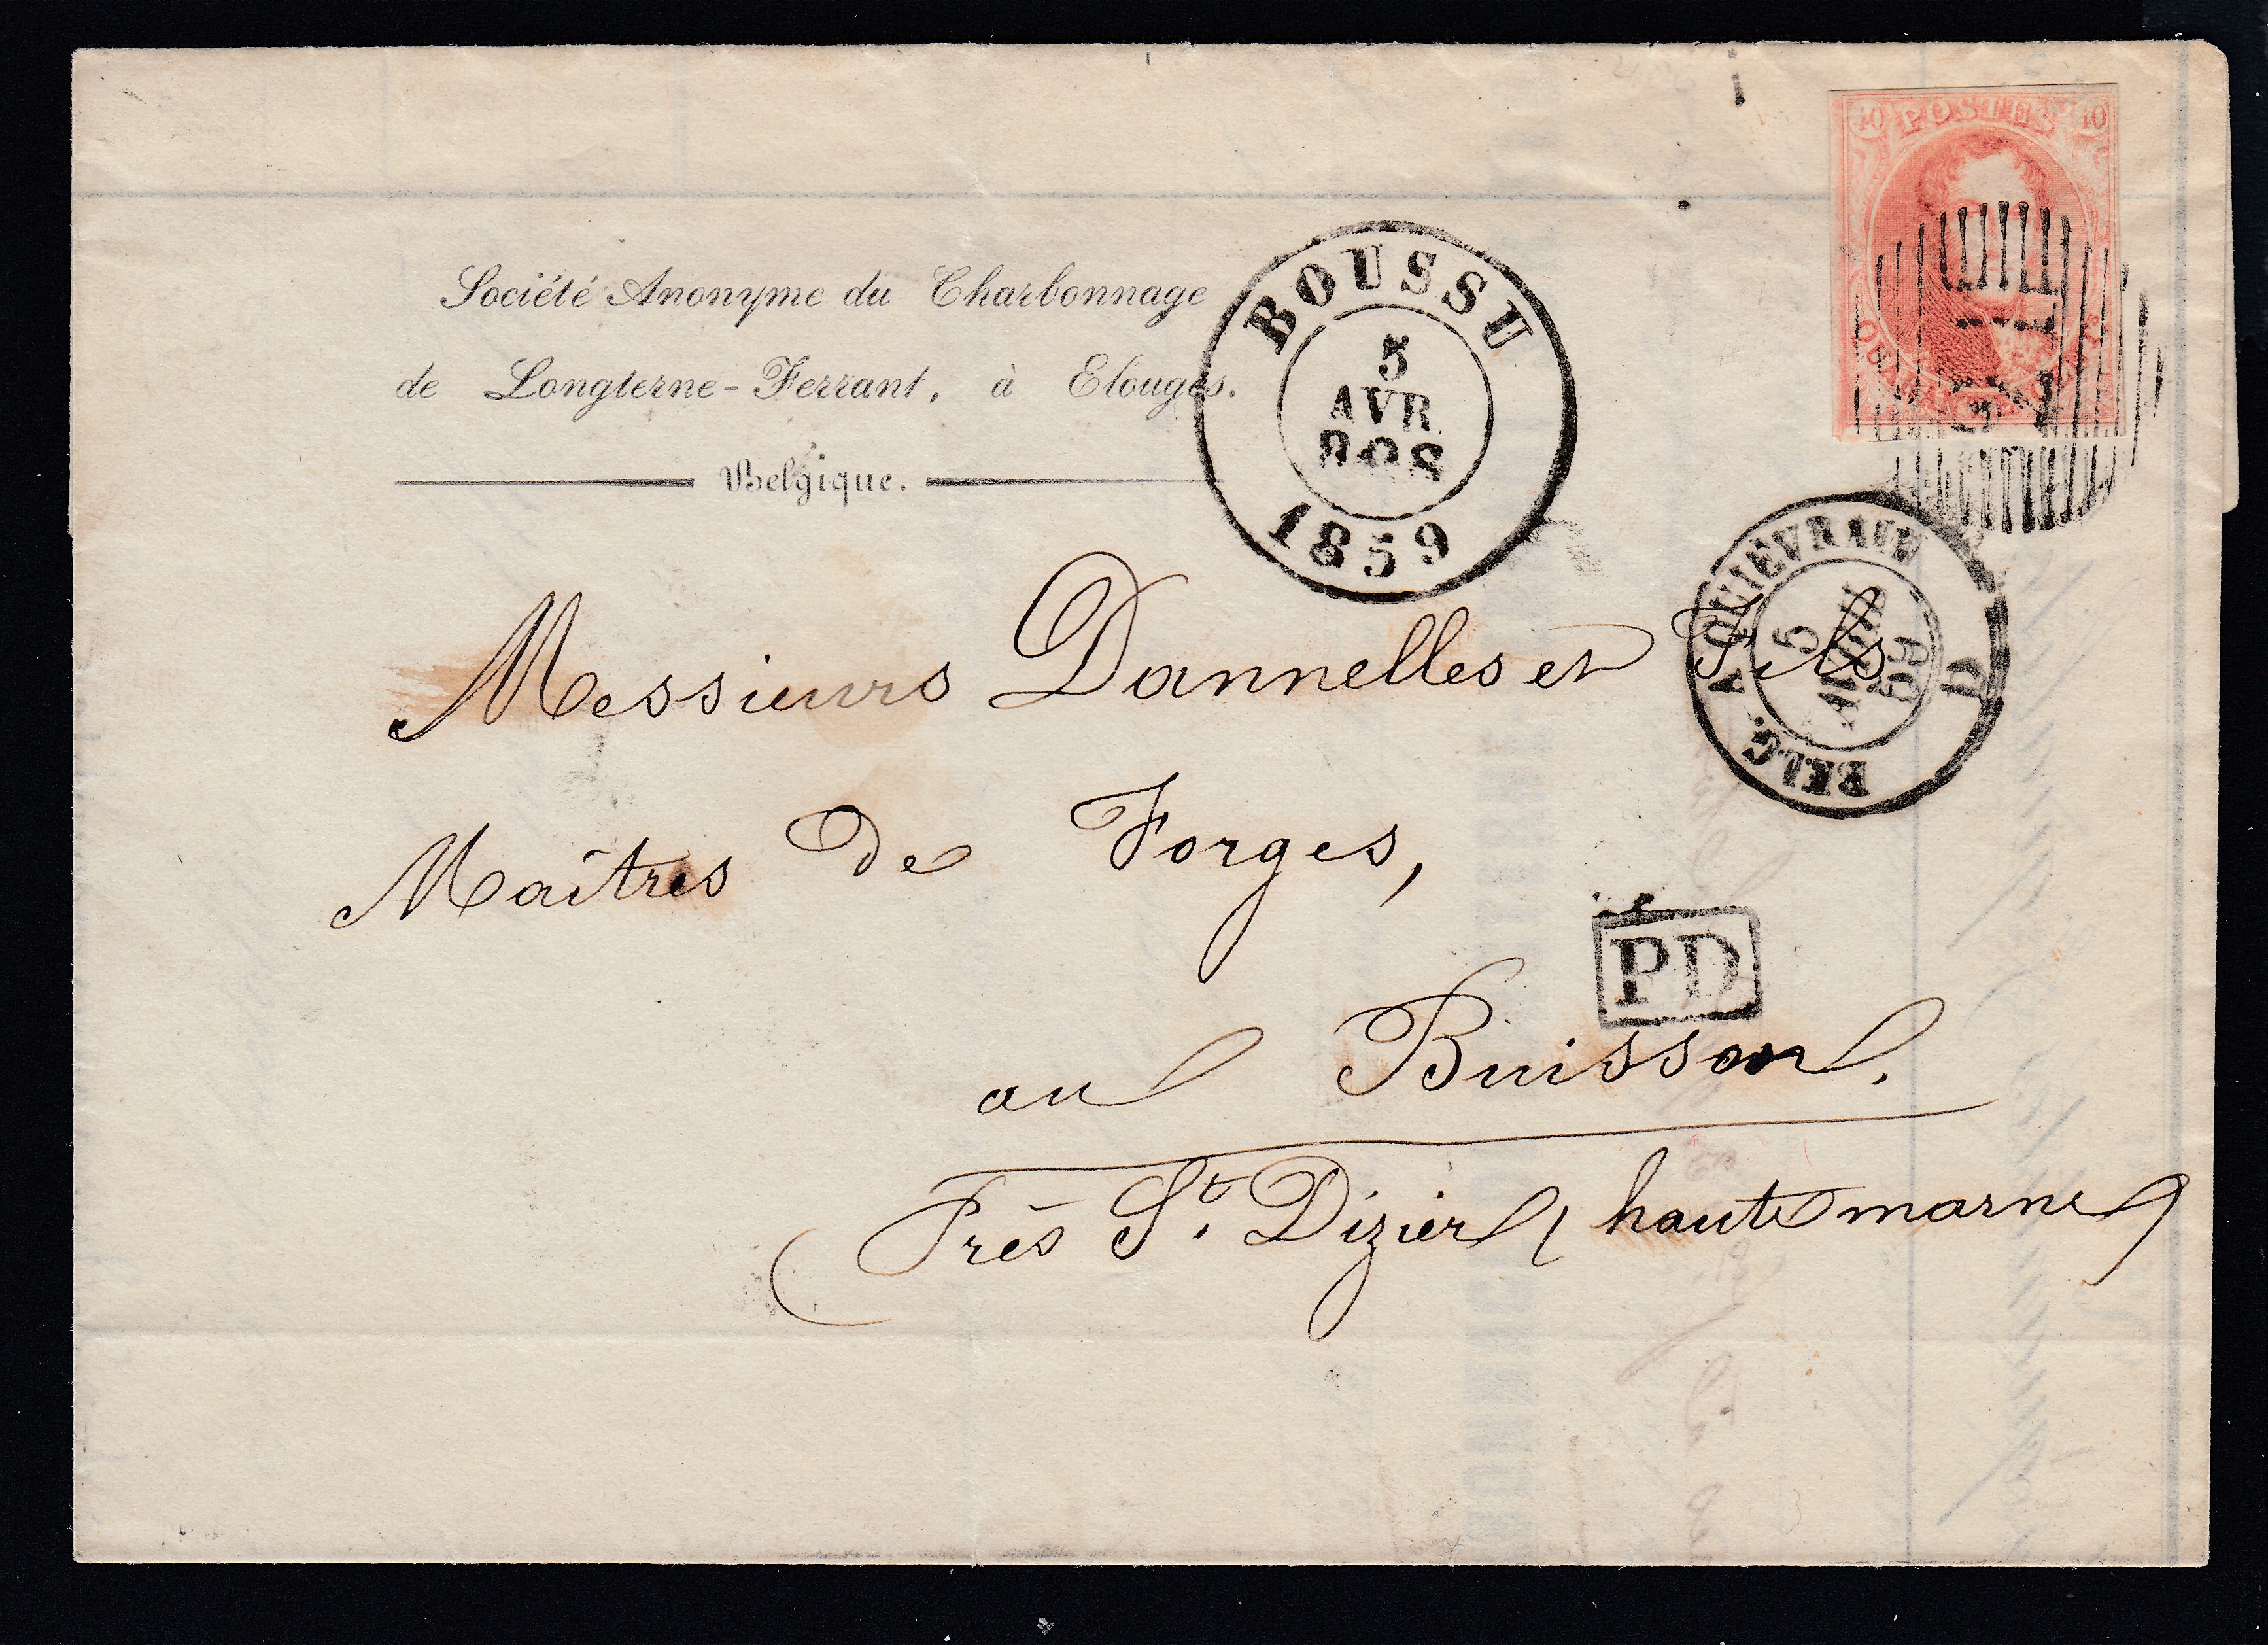 40 POSTES 40
QUARANTE CENTIMES
Société Anonyme du Charbonnage
de Longterne-Ferrant, à Elouges.
Belgique.
BOUSSU
5
AVR
1859
BELG. A QUIÉVRAIN
5
AVRIL
59
D
Messieurs Dannelles et Fils
Maîtres de Forges,
PD
au Buisson.
(Près St. Dizier (haute marne)